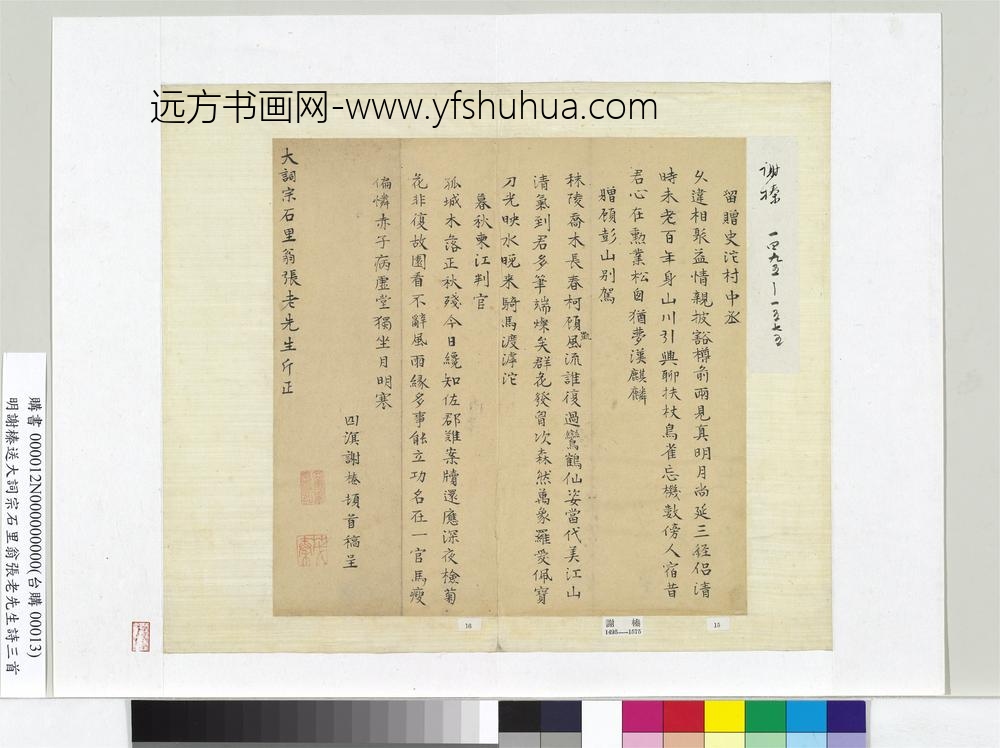 远方书画网-www.yfshuhua.com
謝榛 一四九五－一五七五
留贈史沱村中丞
久違相聚益情親披豁樽前兩見真明月尚延三徑侶清
時未老百年身山川引興聊扶杖鳥雀忘機數傍人宿昔
君心在勳業松自猶夢漢麒麟
贈顧彭山別駕
秣陵喬木長春柯顧風流誰復過鸞鶴仙姿當代美江山
清氣到君多筆端燦矣群花發胷次森然萬象羅愛佩寶
刀光映水晚來騎馬渡滹沱
暮秋柬江判官
孤城木落正秋殘今日纔知佐郡難案牘還應深夜檢菊
花非復故園看不辭風雨緣多事能立功名在一官馬瘦
偏憐赤子病虛堂獨坐月明寒
四溟謝榛頓首稿呈
大詞宗石里翁張老先生斤正
15
謝榛
1495—1575
16
購書 000012N000000000(台購 00013)
明謝榛送大詞宗石里翁張老先生詩三首